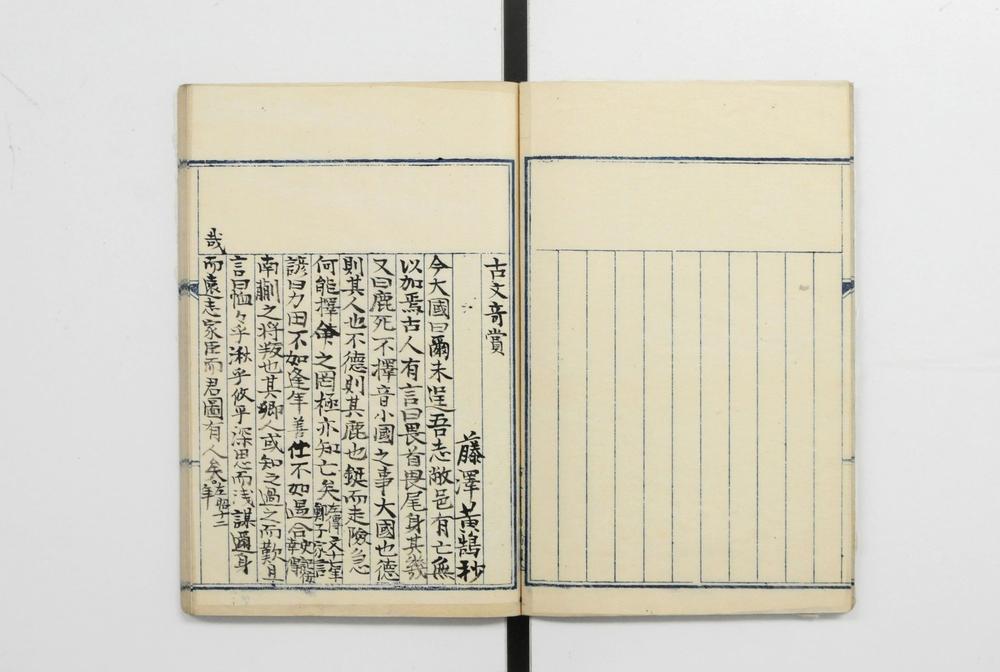 古文竒賞
藤澤黃鵠抄
今大國曰爾未逞吾志敝邑有亡無
以加焉古人有言曰畏首畏尾身其幾
又曰鹿死不擇音小國之事大國也德
則其人也不德則其鹿也鋌而走險急
何能擇命之罔極亦知亡矣左傳文十七年鄭子家言
諺曰力田不如逢年善仕不如遇合史記佞幸傳
南蒯之将叛也其鄉人或知之過之而歎且
言曰恤々乎湫乎攸乎深思而浅謀邇身
而遠志家臣而君圖有人矣哉左昭十二年